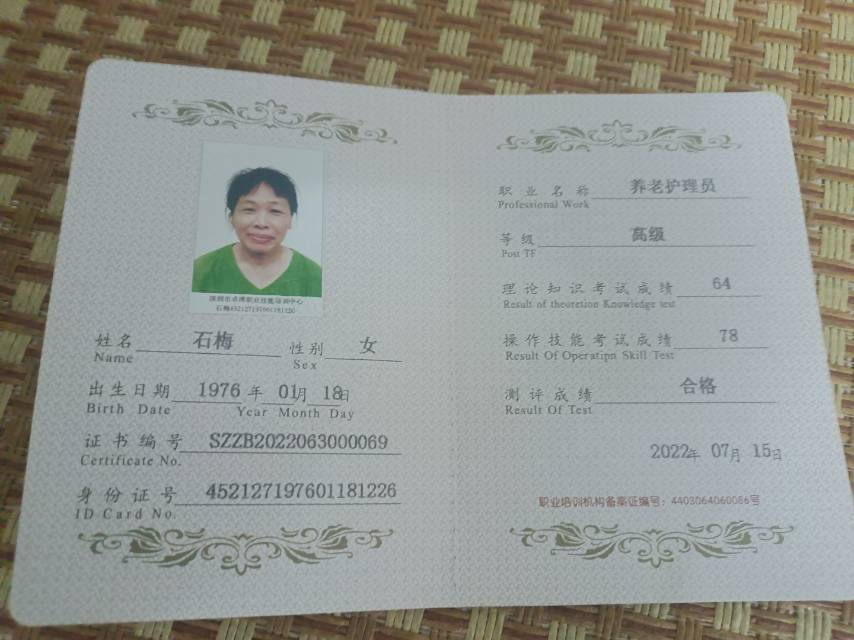 深圳市卓博职业技能培训中心
石梅452127197601181226
姓名 石梅 性别 女
Name Sex
出生日期 1976 年 01月 18日
Birth Date Year Month Day
证书编号 SZZB2022063000069
Certificate No.
身份证号 452127197601181226
ID Card No.
职业名称 养老护理员
Professional Work
等级 高级
Post TF
理论知识考试成绩 64
Result of theoretion Knowledge test
操作技能考试成绩 78
Result Of Operatipn Skill Test
测评成绩 合格
Result Of Test
2022年 07月 15日
职业培训机构备案证编号：4403064060086号